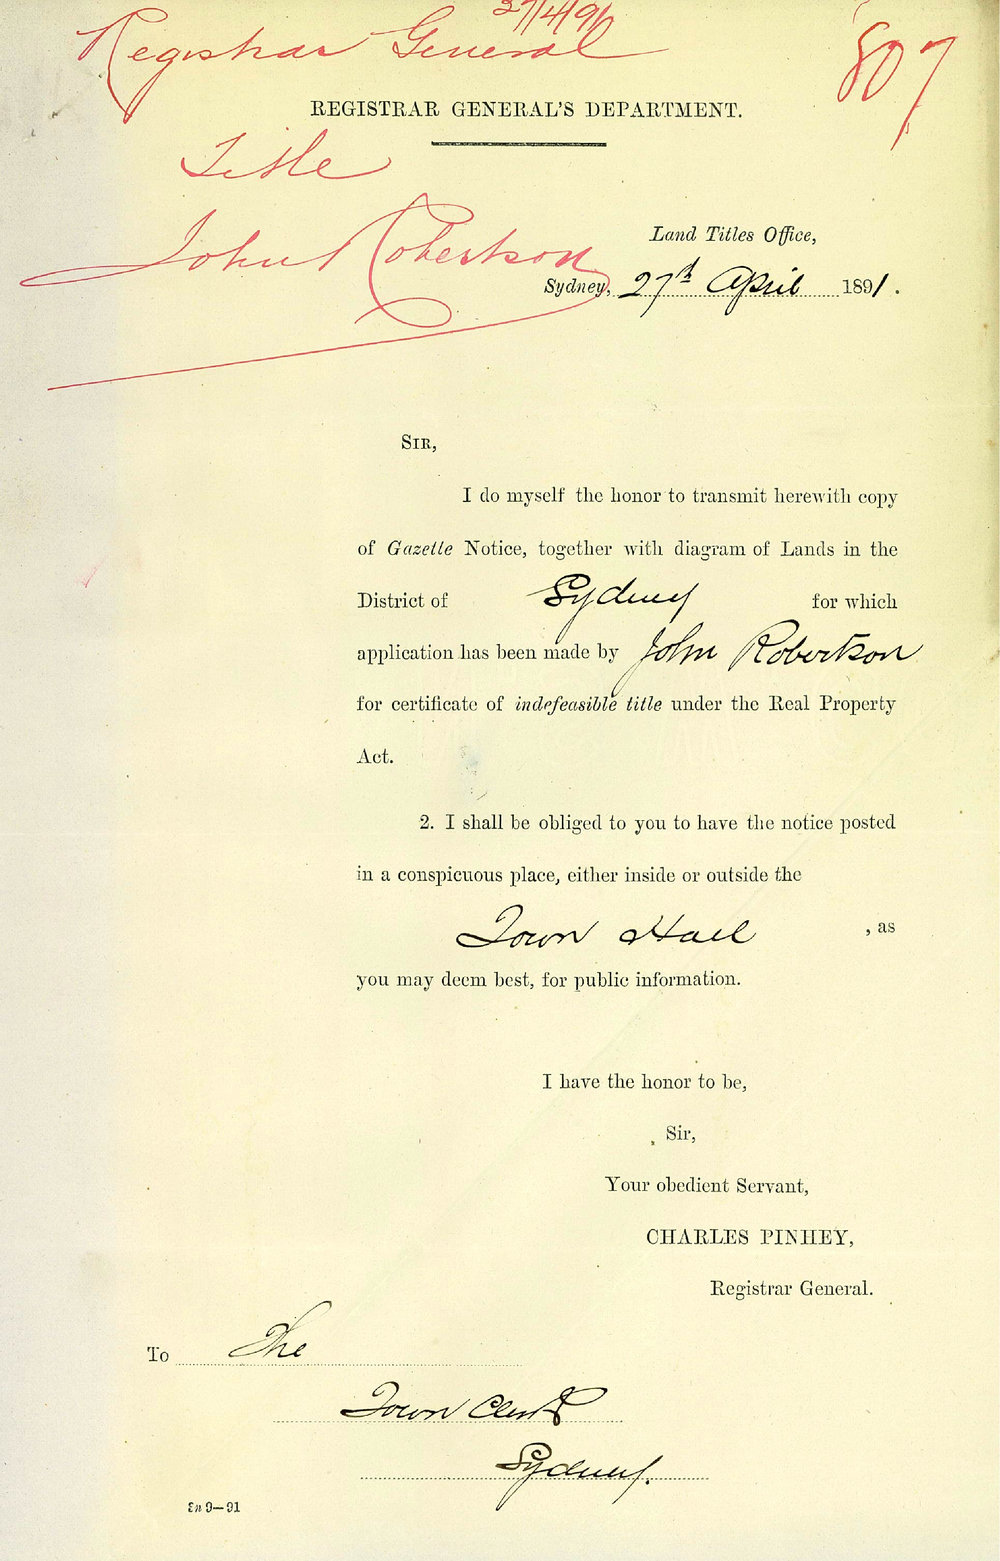 27/4/91
Registrar General
807
REGISTRAR GENERAL'S DEPARTMENT.
Title
John Robertson
Land Titles Office,
Sydney, 27th April 1891.
SIR,
I do myself the honor to transmit herewith copy
of Gazette Notice, together with diagram of Lands in the
District of Sydney for which
application has been made by John Robertson
for certificate of indefeasible title under the Real Property
Act.
2. I shall be obliged to you to have the notice posted
in a conspicuous place, either inside or outside the
Town Hall, as
you may deem best, for public information.
I have the honor to be,
Sir,
Your obedient Servant,
CHARLES PINHEY,
Registrar General.
To The
Town Clerk
Sydney.
9—91